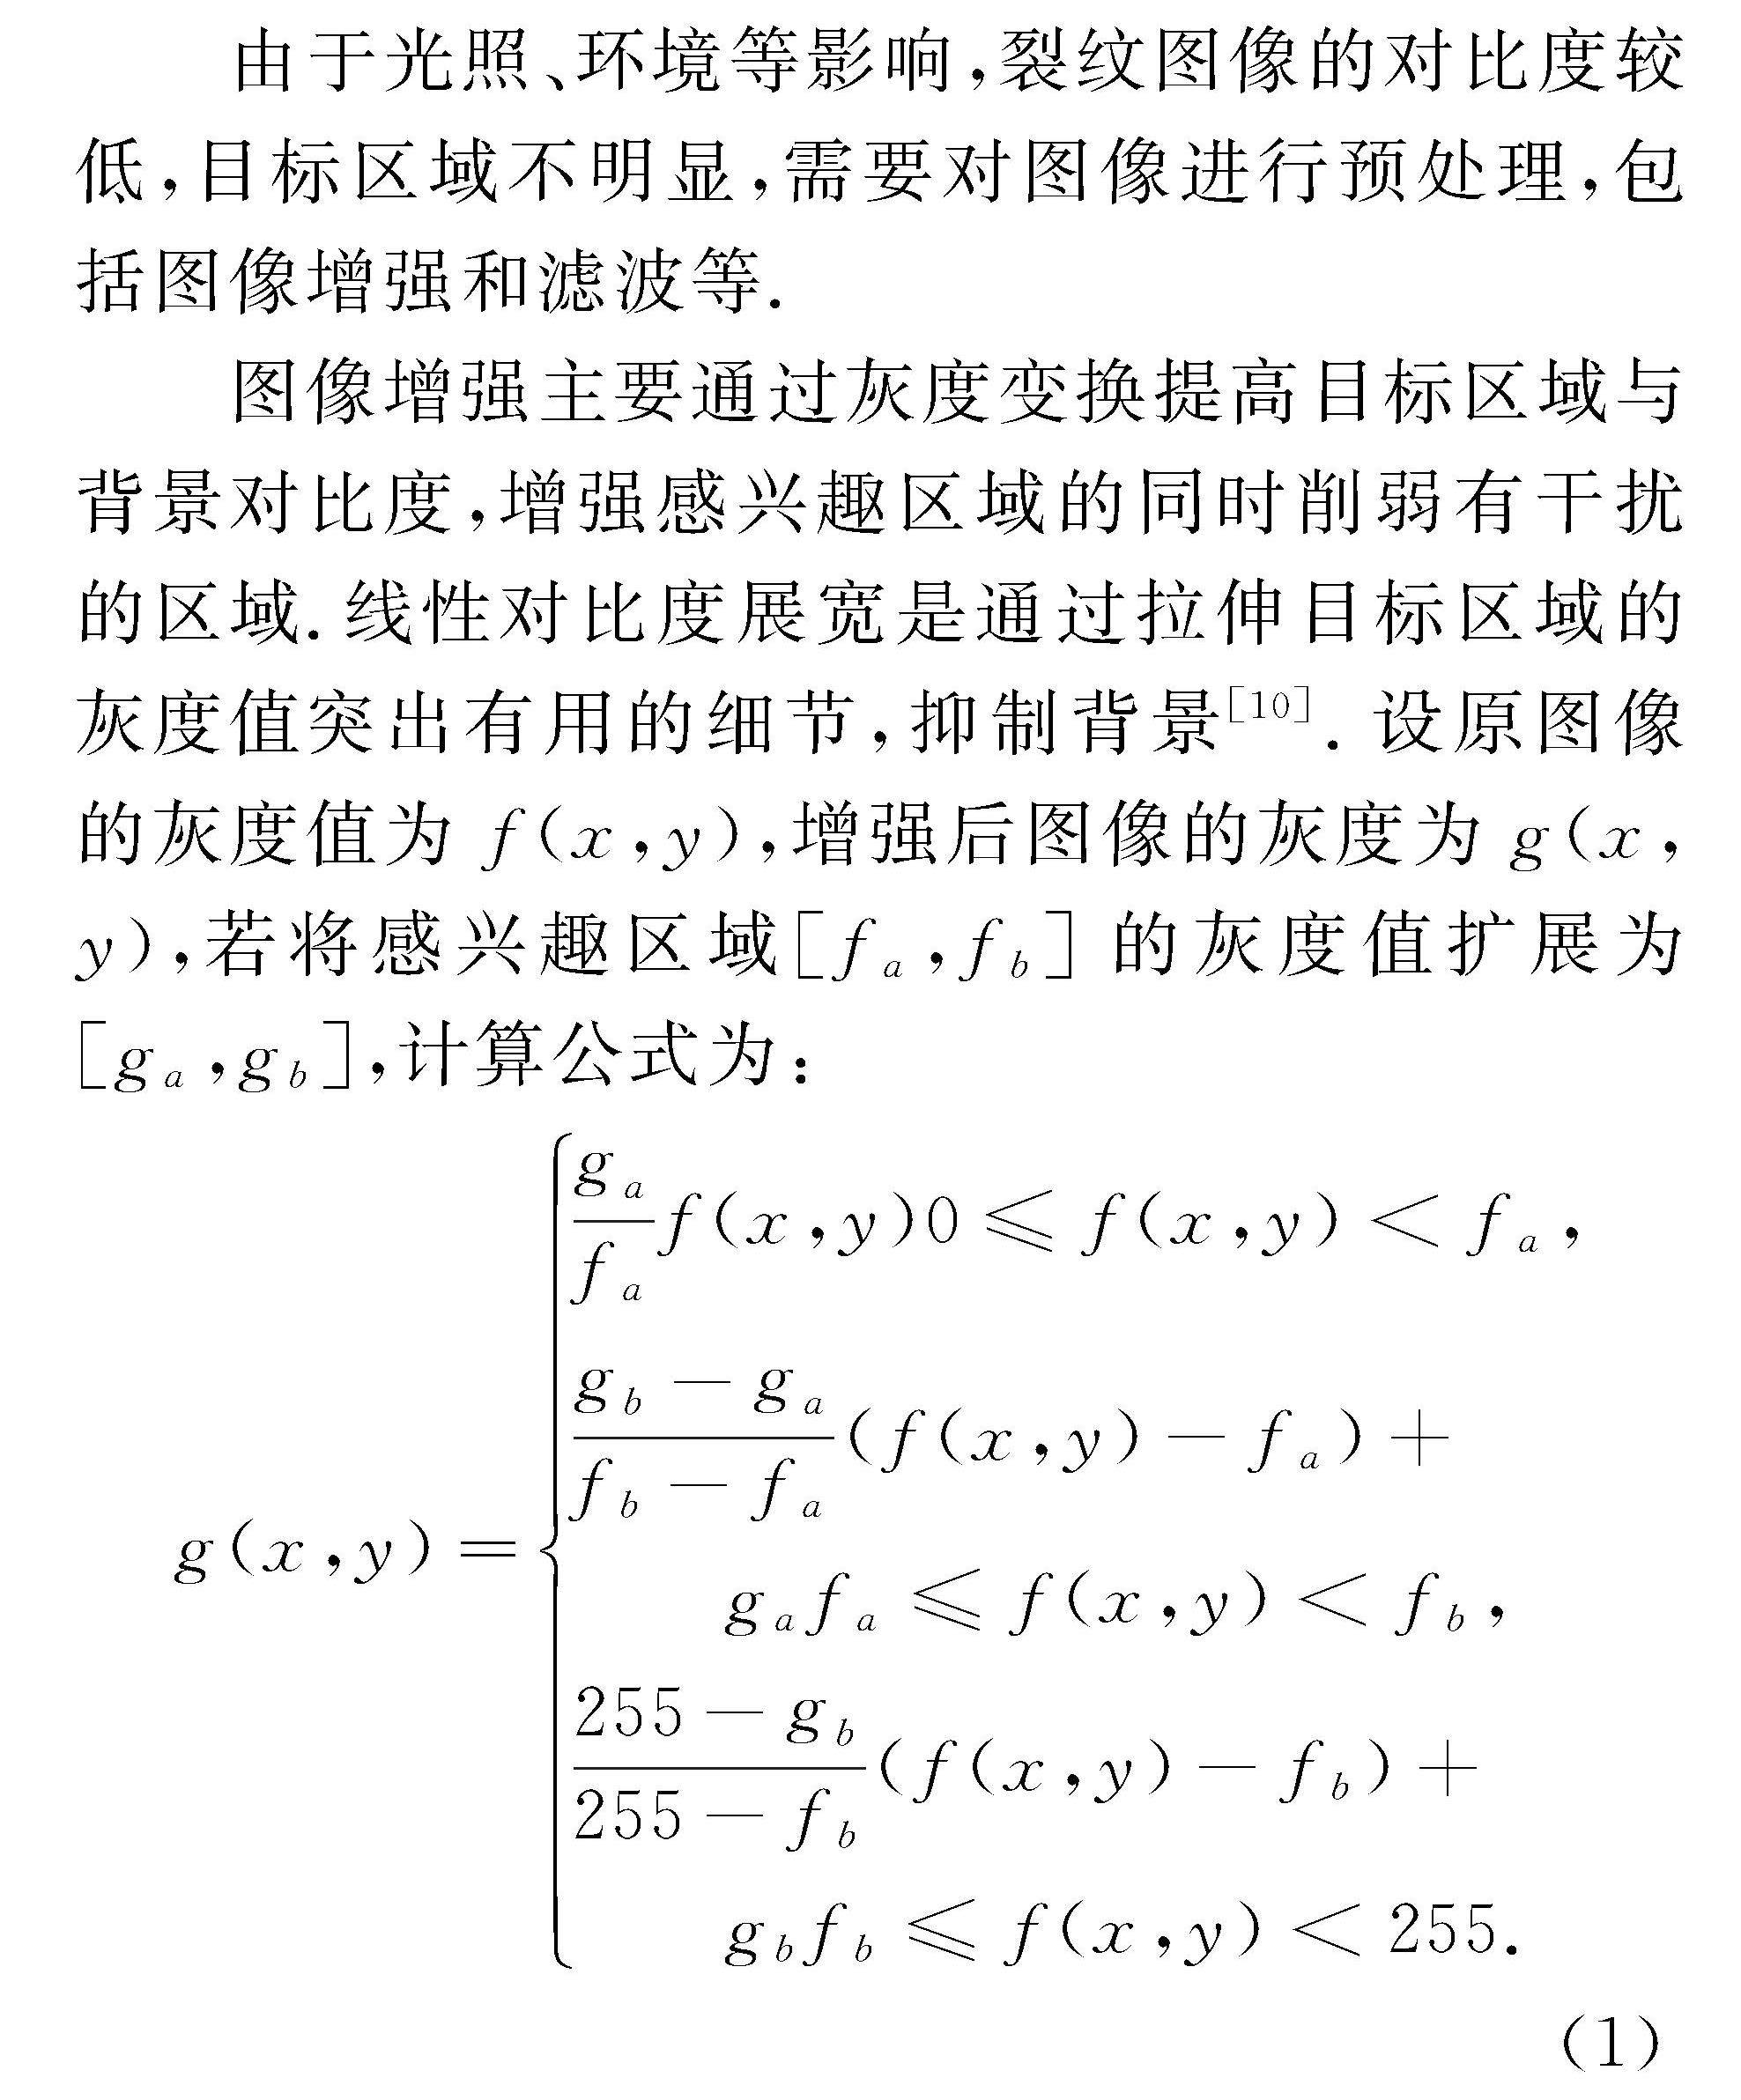 由于光照、环境等影响,裂纹图像的对比度较
低,目标区域不明显,需要对图像进行预处理,包
括图像增强和滤波等.
图像增强主要通过灰度变换提高目标区域与
背景对比度,增强感兴趣区域的同时削弱有干扰
的区域.线性对比度展宽是通过拉伸目标区域的
灰度值突出有用的细节,抑制背景[10].设原图像
的灰度值为 f(x,y),增强后图像的灰度为 g(x,
y),若将感兴趣区域[f_a,f_b]的灰度值扩展为
[g_a,g_b],计算公式为:
g(x,y)={
\frac{g_a}{f_a}f(x,y)0≤f(x,y)<f_a,
\frac{g_b-g_a}{f_b-f_a}(f(x,y)-f_a)+
g_a f_a≤f(x,y)<f_b,
\frac{255-g_b}{255-f_b}(f(x,y)-f_b)+
g_b f_b≤f(x,y)<255.
(1)